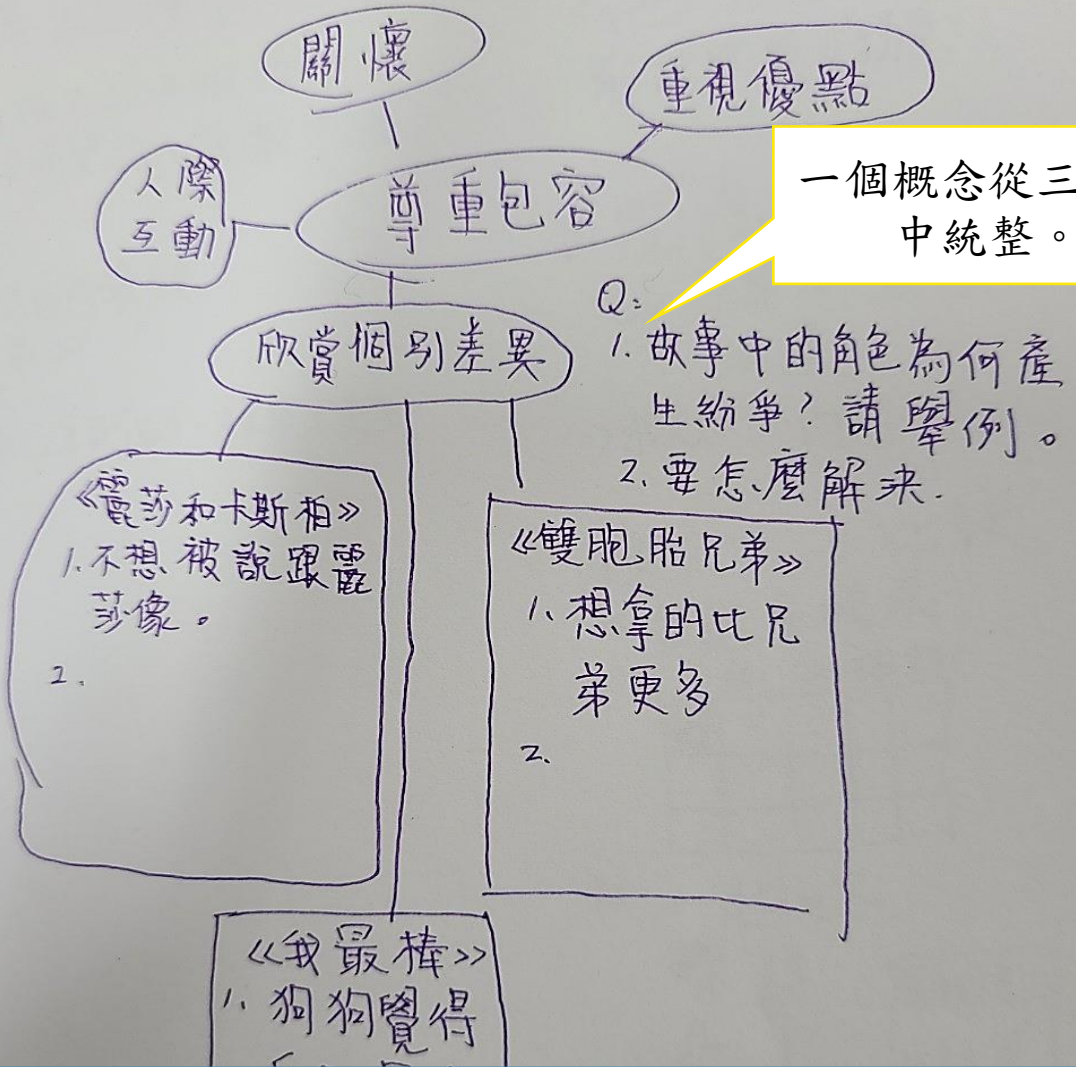 關懷
重視優點
人際
互動
尊重包容
一個概念從三
中統整。
欣賞個別差異
Q:
1. 故事中的角色為何產
生紛爭？請舉例。
2. 要怎麼解決.
《麗莎和卡斯柏》
1. 不想被說跟麗
莎像。
2.
《雙胞胎兄弟》
1. 想拿的比兄
弟更多
2.
《我最棒》
1. 狗狗覺得